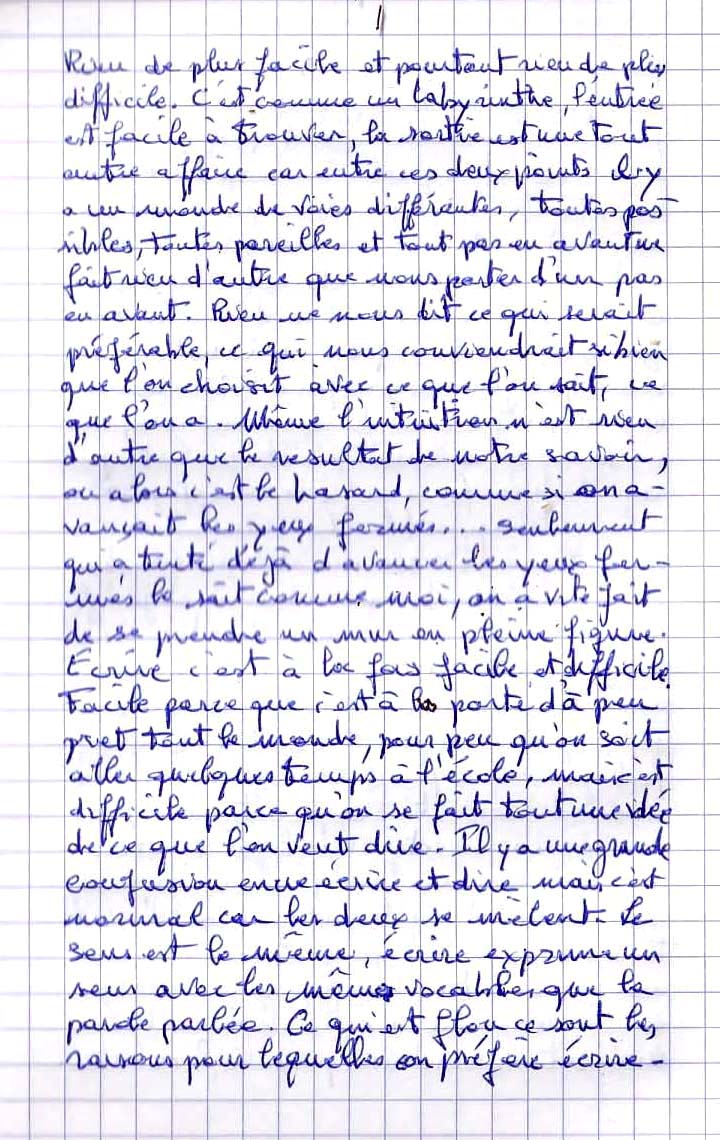 1
Rien de plus facile et pourtant rien de plus
difficile. C'est comme un labyrinthe, l'entrée
est facile à trouver, la sortie est une tout
autre affaire car entre ces deux points il y
a un monde de voies différentes, toutes pos-
sibles, toutes pareilles et tout pas en avant ne
fait rien d'autre que nous porter d'un pas
en avant. Rien ne nous dit ce qui serait
préférable, ce qui nous conviendrait si bien
que l'on choisit avec ce que l'on sait, ce
que l'on a. Même l'intuition n'est rien
d'autre que le resultat de notre savoir,
ou alors c'est le hasard, comme si on a-
vançait les yeux fermés... Seulement
qui a tenté déjà d'avancer les yeux fer-
més le sait comme moi, on a vite fait
de se prendre un mur en pleine figure.
Écrire c'est à la fois facile et difficile.
Facile parce que c'est à la porté d'à peu
pret tout le monde, pour peu qu'on soit
aller quelques temps à l'école, mais c'est
difficile parce qu'on se fait toute une idée
de ce que l'on veut dire. Il y a une grande
confusion entre écrire et dire mais c'est
normal car les deux se mêlent. Le
sens est le même, écrire exprime un
sens avec les mêmes vocables que la
parole parlée. Ce qui est flou ce sont les
raisons pour lequelles on préfère écrire.